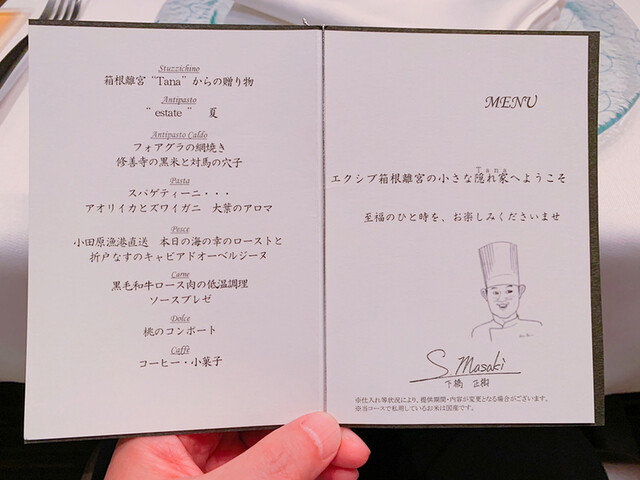 Stuzzichino
箱根離宮“Tana”からの贈り物
Antipasto
“ estate ”　夏
Antipasto Caldo
フォアグラの網焼き
修善寺の黒米と対馬の穴子
Pasta
スパゲティーニ・・・
アオリイカとズワイガニ　大葉のアロマ
Pesce
小田原漁港直送　本日の海の幸のローストと
折戸なすのキャビアドオーベルジーヌ
Carne
黒毛和牛ロース肉の低温調理
ソースブレゼ
Dolce
桃のコンポート
Caffè
コーヒー・小菓子
MENU
Tana
エクシブ箱根離宮の小さな隠れ家へようこそ
至福のひと時を、お楽しみくださいませ
S. Masaki
下橋　正樹
※仕入れ等状況により、提供期間・内容が変更となる場合がございます。
※当コースで私用しているお米は国産です。